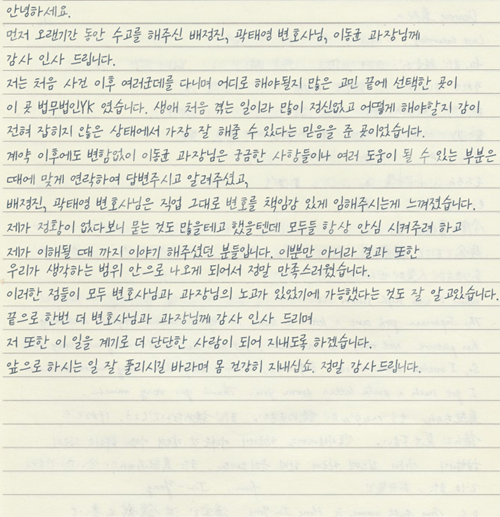 안녕하세요.
먼저 오랜기간 동안 수고를 해주신 배정진, 곽태영 변호사님, 이동균 과장님께
감사 인사 드립니다.
저는 처음 사건 이후 여러군데를 다니며 어디로 해야될지 많은 고민 끝에 선택한 곳이
이 곳 법무법인YK 였습니다. 생애 처음 겪는 일이라 많이 정신없고 어떻게 해야할지 감이
전혀 잡히지 않은 상태에서 가장 잘 해줄 수 있다는 믿음을 준 곳이었습니다.
계약 이후에도 변함없이 이동균 과장님은 궁금한 사항들이나 여러 도움이 될 수 있는 부분은
때에 맞게 연락하여 답변주시고 알려주셨고,
배정진, 곽태영 변호사님은 직업 그대로 변호를 책임감 있게 임해주시는게 느껴졌습니다.
제가 경황이 없다보니 묻는 것도 많을테고 했을텐데 모두들 항상 안심 시켜주려 하고
제가 이해될 때 까지 이야기 해주셨던 분들입니다. 이뿐만 아니라 결과 또한
우리가 생각하는 범위 안으로 나오게 되어서 정말 만족스러웠습니다.
이러한 점들이 모두 변호사님과 과장님의 노고가 있었기에 가능했다는 것도 잘 알고있습니다.
끝으로 한번 더 변호사님과 과장님께 감사 인사 드리며
저 또한 이 일을 계기로 더 단단한 사람이 되어 지내도록 하겠습니다.
앞으로 하시는 일 잘 풀리시길 바라며 몸 건강히 지내십쇼. 정말 감사드립니다.